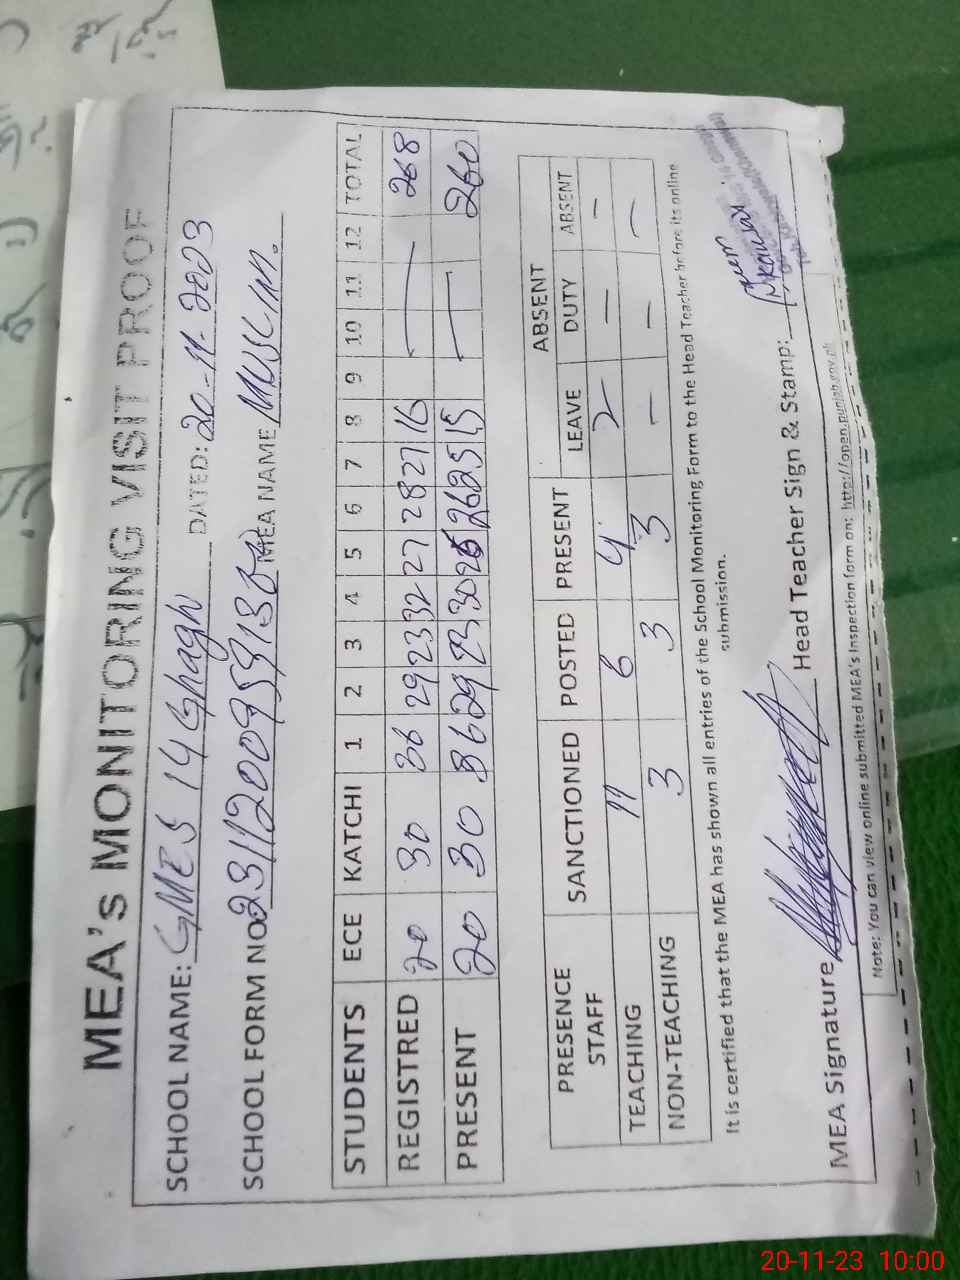 MEA's MONITORING VISIT PROOF
SCHOOL NAME: GMES 14 Ghagh DATED: 20-11-2023
SCHOOL FORM NO MEA NAME MUSLIM.
STUDENTS ECE KATCHI 1 2 3 4 5 6 7 8 9 10 11 12 TOTAL
REGISTRED 20 30 36 29 23 32 27 28 27 16 — 268
PRESENT 20 30 36 29 23 30 26 26 25 15 — 260
ABSENT
PRESENCE STAFF SANCTIONED POSTED PRESENT LEAVE DUTY ABSENT
TEACHING 11 6 4 2 — —
NON-TEACHING 3 3 3 — — —
It is certified that the MEA has shown all entries of the School Monitoring Form to the Head Teacher before its online
submission.
MEA Signature Head Teacher Sign & Stamp:
Note: You can view online submitted MEA's Inspection form on: http://open.punjab.gov.pk
20-11-23 10:00